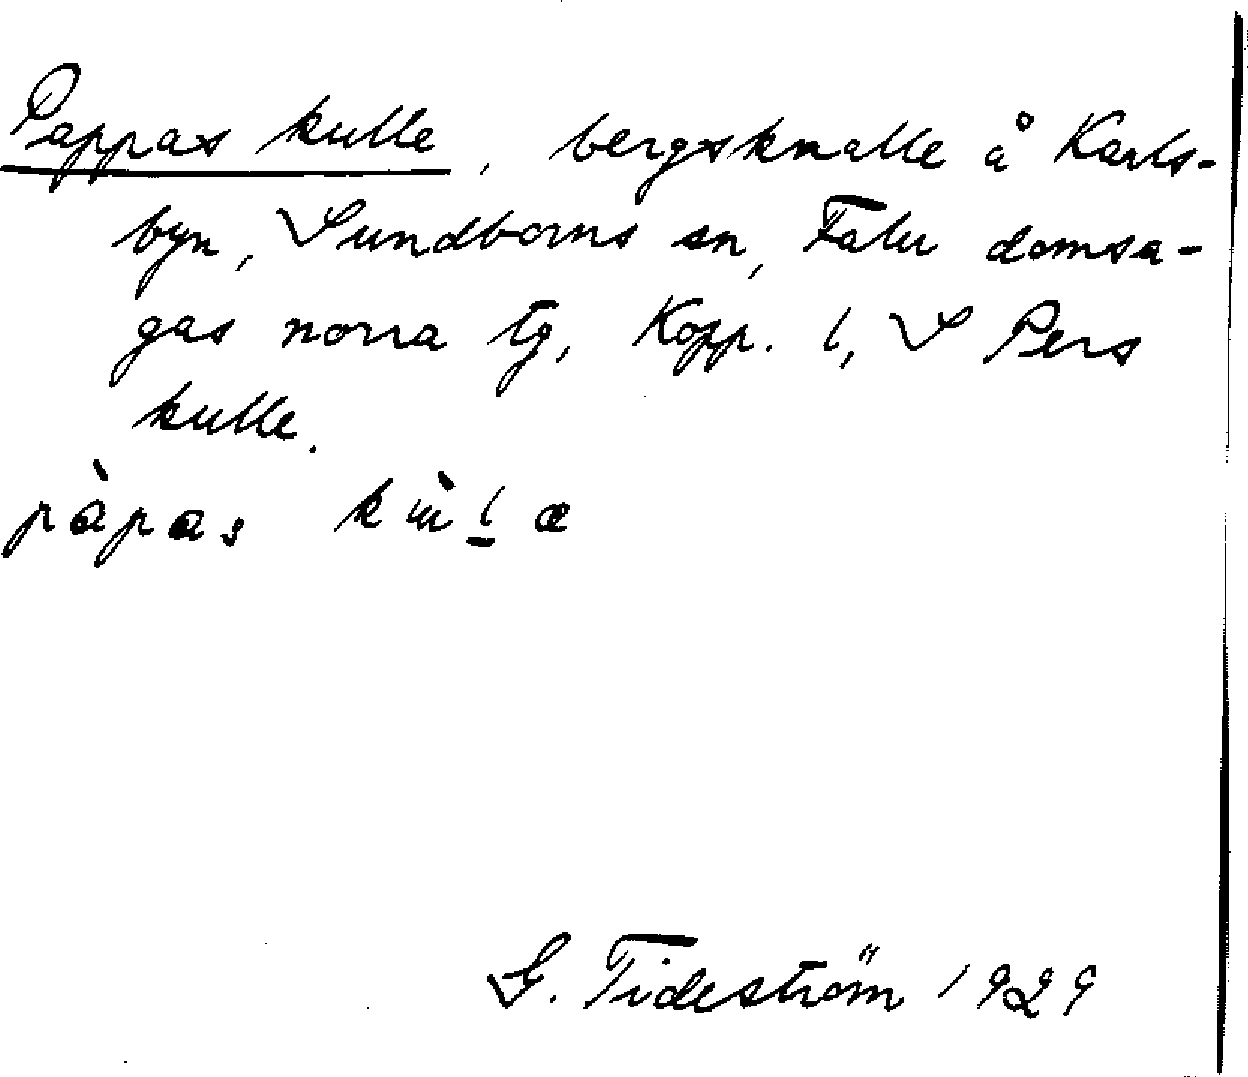 Pappas kulle, bergsknalle å Karls-
byn, Sundborns sn, Falu domsa-
gas norra tg, Kopp. l, S Pers
kulle.
pàpas
G. Tideström 1929